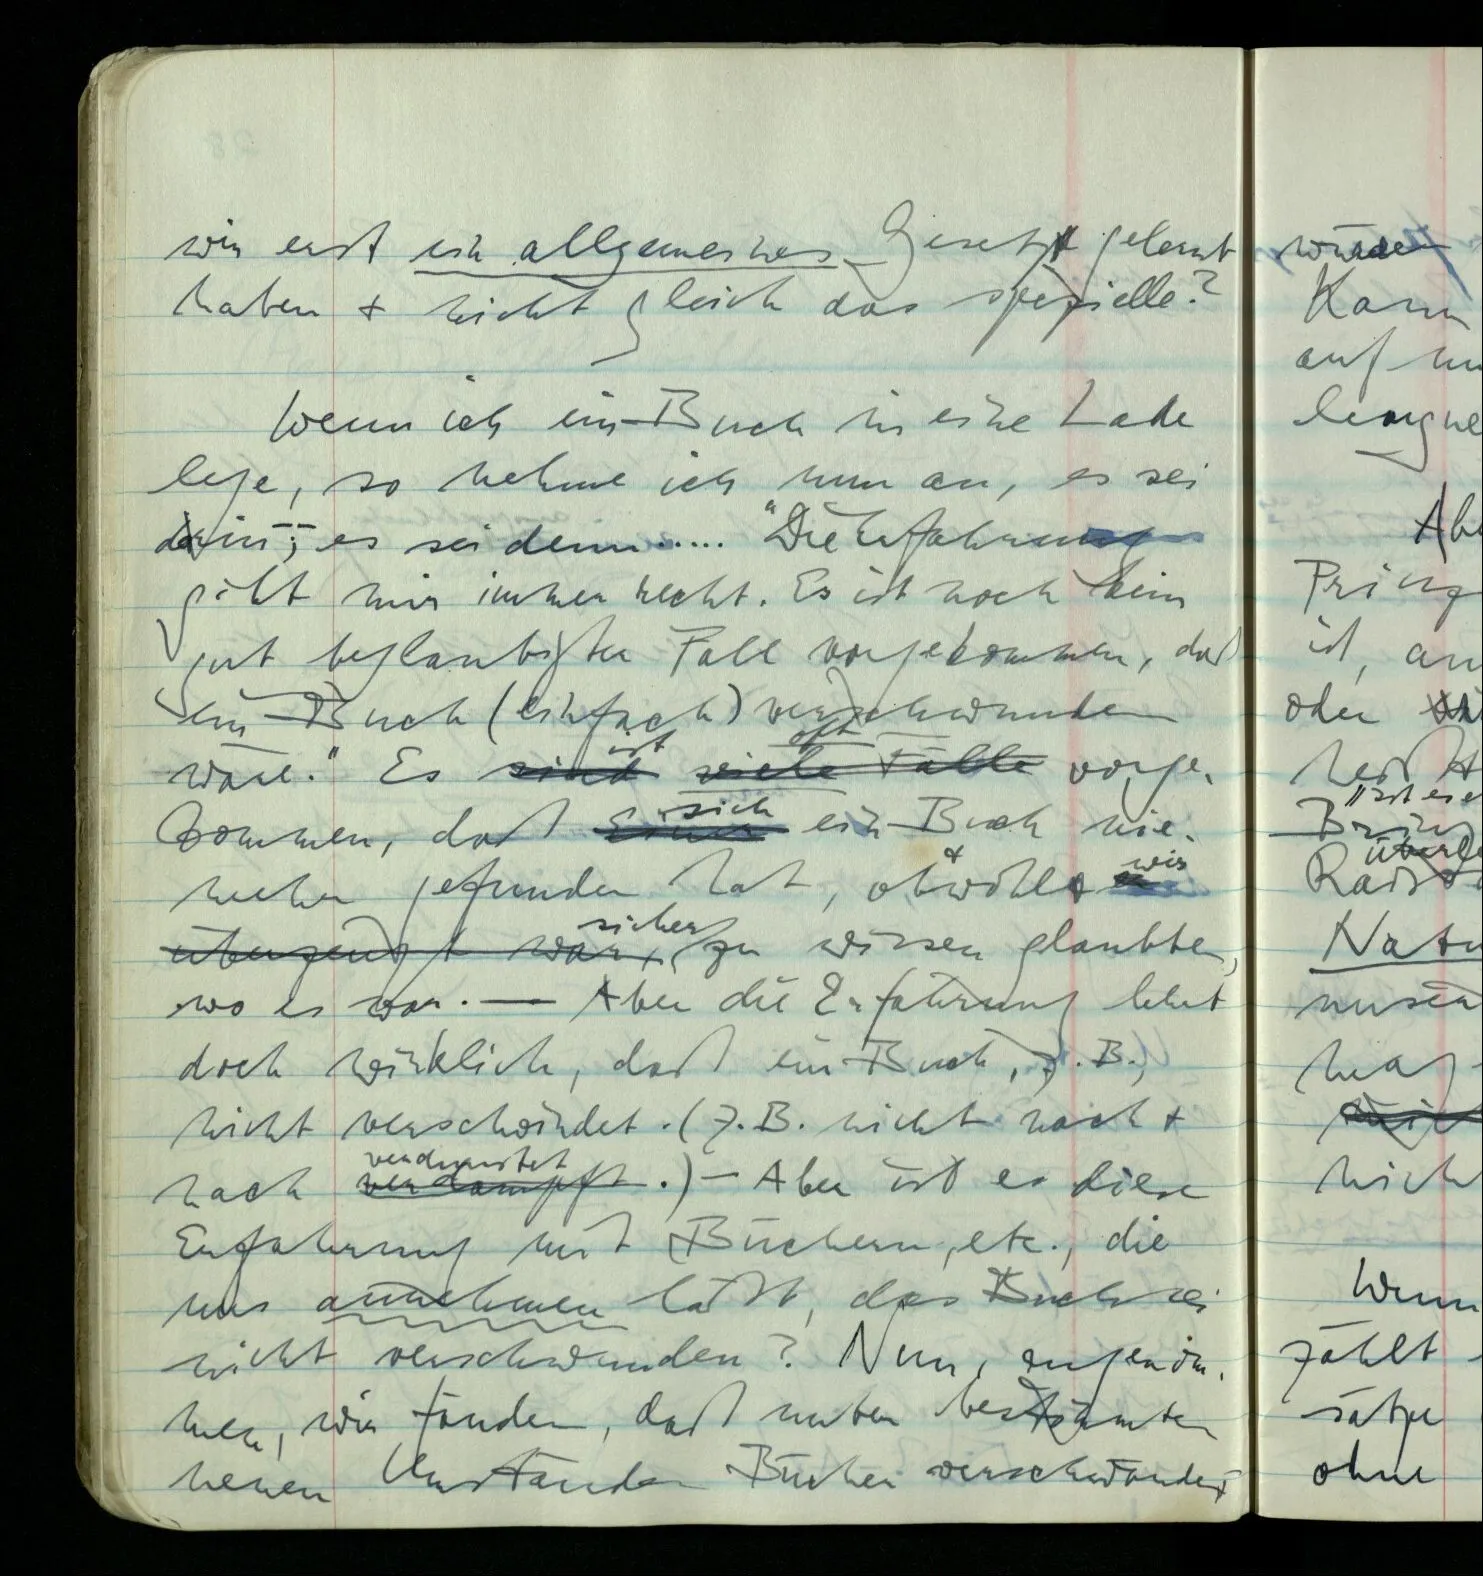 wir erst ein allgemeines Gesetz gelernt
haben + nicht gleich das spezielle?
Wenn ich ein Buch in eine Lade
lege, so nehme ich nun an, es sei
darin, es sei denn..... "Die Erfahrung
gibt mir immer recht. Es ist noch kein
gut beglaubigter Fall vorgekommen, daß
ein Buch (einfach) verschwunden
wäre." Es sind ist viele Fälle oft vorge-
kommen, daß einer sich ein Buch nie-
mehr gefunden hat, obwohl + wir
überzeugt war, sicher zu wissen glaubten,
wo es war. — Aber die Erfahrung lehrt
doch wirklich, daß ein Buch, z.B.,
nicht verschwindet. (z.B. nicht nach +
nach verdampft verdunstet.) — Aber ist es diese
Erfahrung mit Büchern, etc., die
uns annehmen läßt, das Buch sei
nicht verschwunden? Nun, angenom-
men, wir fänden, daß unter bestimmten
neuen Umständen Bücher verschwänden
würde
Kann
auf
leugne
Abe
Prinz
ist, an
oder
heißt
"ist es
Prinz
überle
Radi
Natu
nuse
mag
nich
Wenn
zählt
sätze
ohne